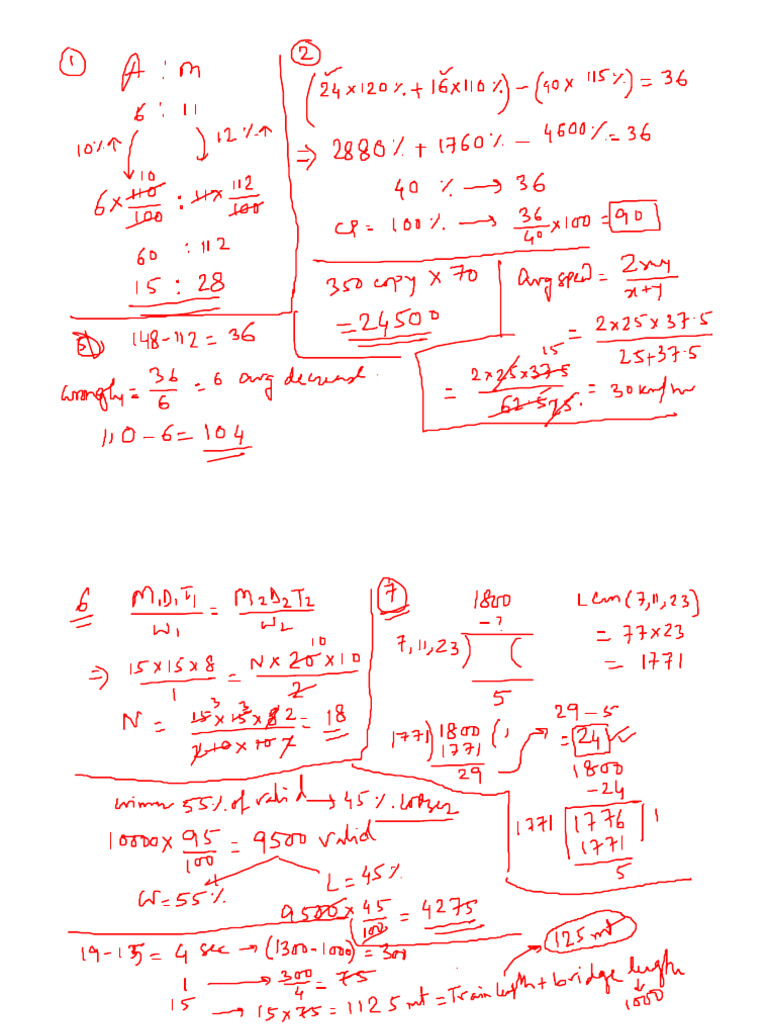 ①
A : m
6 : 11
10%↑ 12%↑
6 × 110/100 : 11 × 112/100
10
60 : 112
15 : 28
②
(24×120% + 16×110%) - (40× 115%) = 36
⇒ 2880% + 1760% - 4600% = 36
40 % → 36
CP = 100% → 36/40 × 100 = 90
350 copy × 70
= 24500
Avg speed = 2xy/x+y
= 2×25×37.5/25+37.5
= 2×25×37.5/62.5 = 30 km/hr
15
25
5) 148-112 = 36
wrongly = 36/6 = 6 avg decrease
110 - 6 = 104
6
M1D1T1/W1 = M2D2T2/W2
⇒ 15×15×8/1 = N×20×10/2
10
N = 15×15×8 2/2 10×10 7 = 18
3 3
⑦
1800
-?
7,11,23)   (
5
Lcm(7,11,23)
= 77×23
= 1771
1771) 1800 (1
1771
29
29-5
= 24 ✓
1800
-24
1771 | 1776 | 1
1771
5
winner 55% of valid → 45% looser
10000 × 95/100 = 9500 valid
W = 55% L = 45%
9500 × 45/100 = 4275
19-15 = 4 sec → (1300-1000) = 300
1 → 300/4 = 75
15 → 15×75 = 1125 mt = Train length + bridge length
1000
125 mt